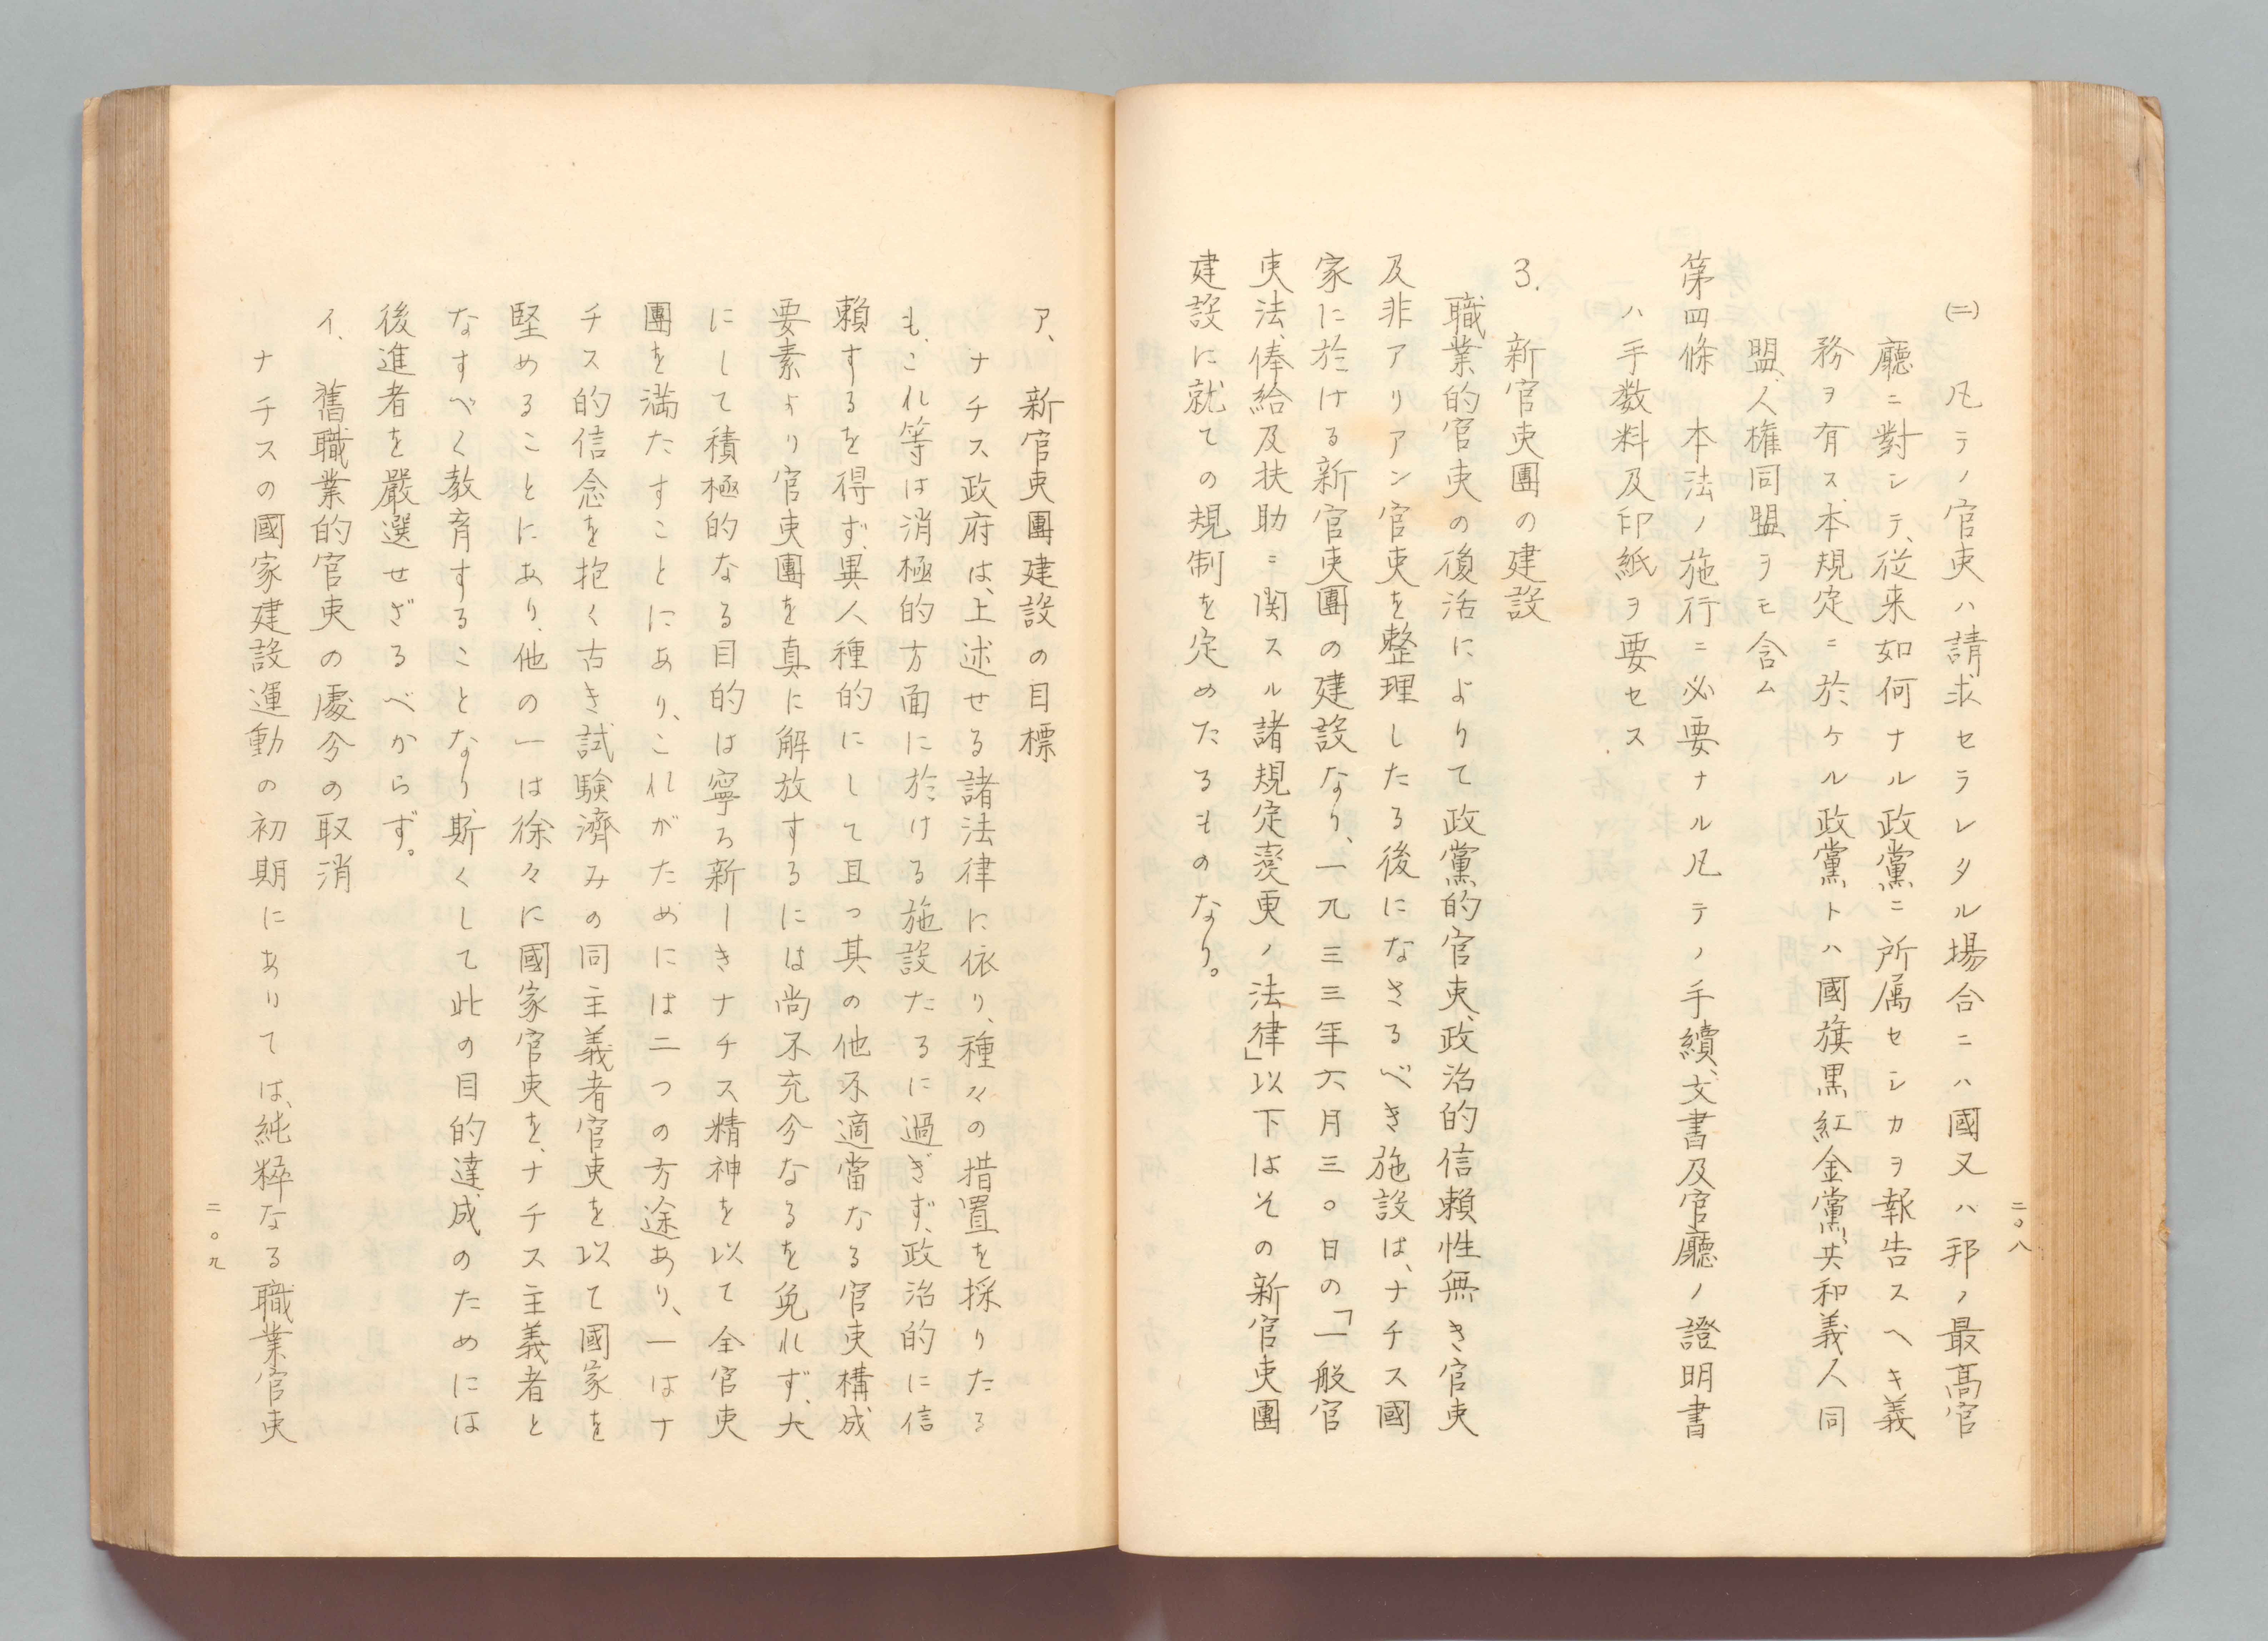 二〇八
(二) 凡テノ官吏ハ請求セラレタル場合ニハ國又ハ邦ノ最高官
廳ニ對シテ、從来如何ナル政黨ニ所属セシカヲ報告スヘキ義
務ヲ有ス、本規定ニ於ケル政黨トハ國旗黒紅金黨、共和義人同
盟、人権同盟ヲモ含ム
第四條 本法ノ施行ニ必要ナル凡テノ手續、文書及官廳ノ證明書
ハ手数料及印紙ヲ要セス
3. 新官吏團の建設
職業的官吏の復活によりて政黨的官吏、政治的信頼性無き官吏
及非アリアン官吏を整理したる後になさるべき施設は、ナチス國
家に於ける新官吏團の建設なり、一九三三年六月三〇日の「一般官
吏法、俸給及扶助ニ関スル諸規定変更ノ法律」以下はその新官吏團
建設に就ての規制を定めたるものなり。
ア、 新官吏團建設の目標
ナチス政府は、上述せる諸法律に依り、種々の措置を採りたる
も、これ等は消極的方面に於ける施設たるに過ぎず、政治的に信
頼するを得ず、異人種的にして且つ其の他不適當なる官吏構成
要素より官吏團を真に解放するには尚不充分なるを免れず、大
にして積極的なる目的は寧ろ新しきナチス精神を以て全官吏
團を満たすことにあり、これがためには二つの方途あり、一はナ
チス的信念を抱く古き試験濟みの同主義者官吏を以て國家を
堅めることにあり、他の一は徐々に國家官吏を、ナチス主義者と
なすべく教育することなり、斯くして此の目的達成のためには
後進者を嚴選せざるべからず。
イ、 舊職業的官吏の處分の取消
ナチスの國家建設運動の初期にありては、純粋なる職業官吏
二〇九